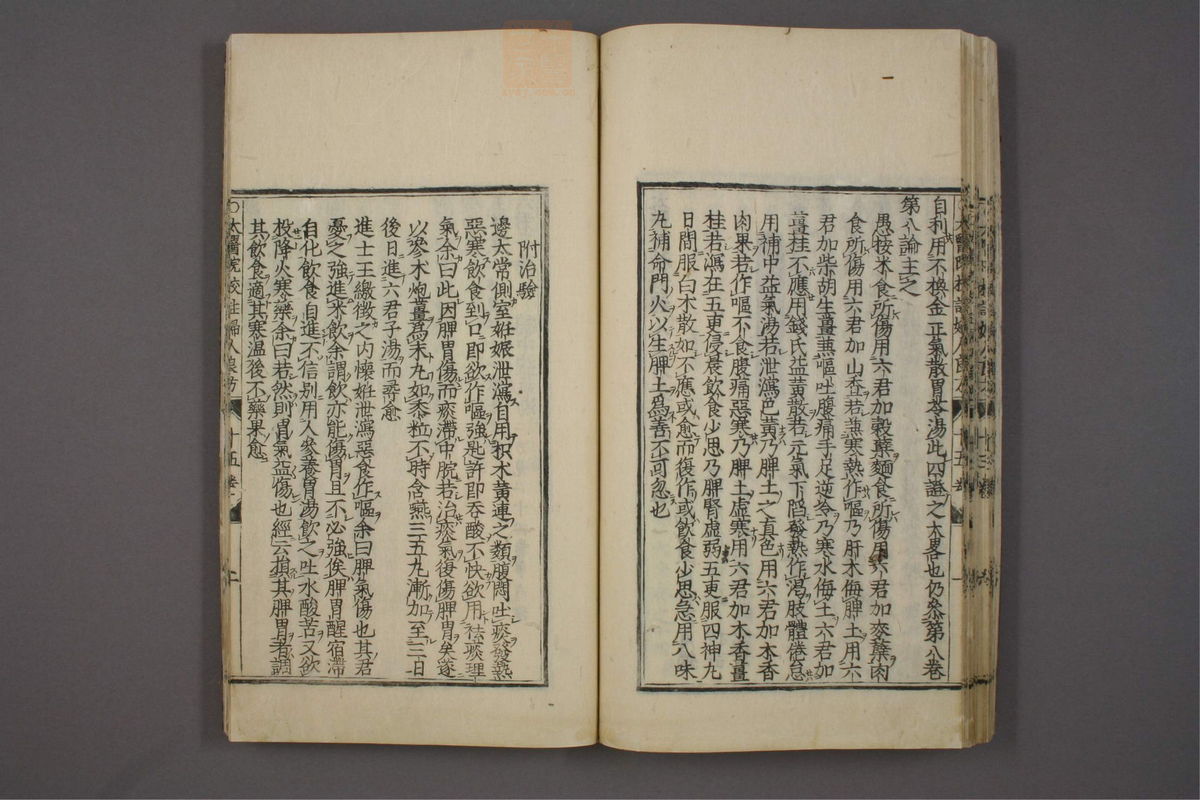 自利用不換金正氣散胃苓湯此四證之大畧也仍叅第八卷
第八論主之
愚按米食所傷用六君加穀蘗麵食所傷用六君加麥蘗肉
食所傷用六君加山查若兼寒熱作嘔乃肝木侮脾土用六
君加柴胡生薑兼嘔吐腹痛手足逆冷乃寒水侮土六君加
薑桂不應用錢氏益黃散若元氣下陷發熱作渴肢體倦怠
用補中益氣湯若泄瀉色黃乃脾土之真色用六君加木香
肉果若作嘔不食腹痛惡寒乃脾土虛寒用六君加木香薑
桂若瀉在五更侵晨飲食少思乃脾腎虛弱五更服四神丸
日間服白朮散如不應或愈而復作或飲食少思急用八味
丸補命門火以生脾土爲善不可忽也
附治驗
邊太常側室妊娠泄瀉自用枳朮黃連之類腹悶吐痰發熱
惡寒飲食到口即欲作嘔強匙許即吞酸不快欲用祛痰理
氣余曰此因脾胃傷而痰滯中脘若治痰氣復傷脾胃矣遂
以參朮炮薑爲末丸如黍粒不時含嚥三五丸漸加至三日
後日進六君子湯而尋愈
進士王繳徵之內懷妊泄瀉惡食作嘔余曰脾氣傷也其君
憂之強進米飲余謂飲亦能傷胃且不必強俟脾胃醒宿滯
自化飲食自進不信別用人參養胃湯飲之吐水酸苦又欲
投降火寒藥余曰若然則胃氣益傷也經云損其脾胃者調
其飲食適其寒溫後不藥果愈
○太醫院校註婦人良方 十五卷 二